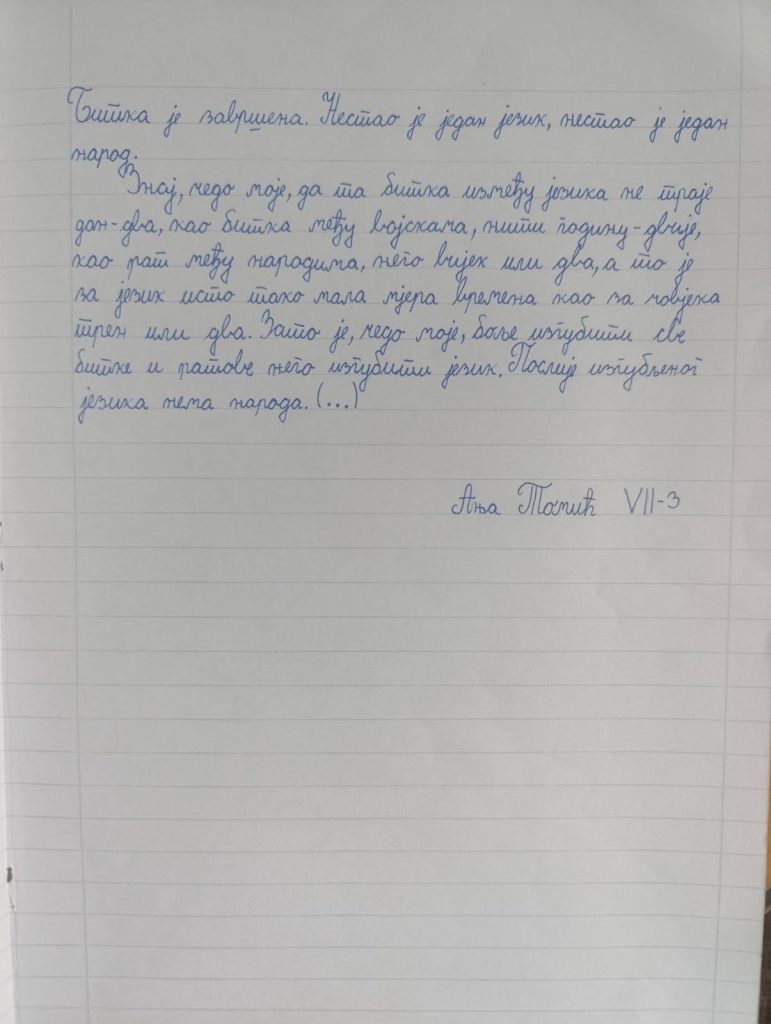 Битка је завршена. Нестао је један језик, нестао је један
народ.
Знај, чедо моје, да та битка између језика не траје
дан-два, као битка међу војскама, нити годину-двије,
као рат међу народима, него вијек или два, а то је
за језик исто тако мала мјера времена као за човјека
трен или два. Зато је, чедо моје, боље изгубити све
битке и ратове него изгубити језик. Послије изгубљеног
језика нема народа. (...)
Ања Томић VII-3